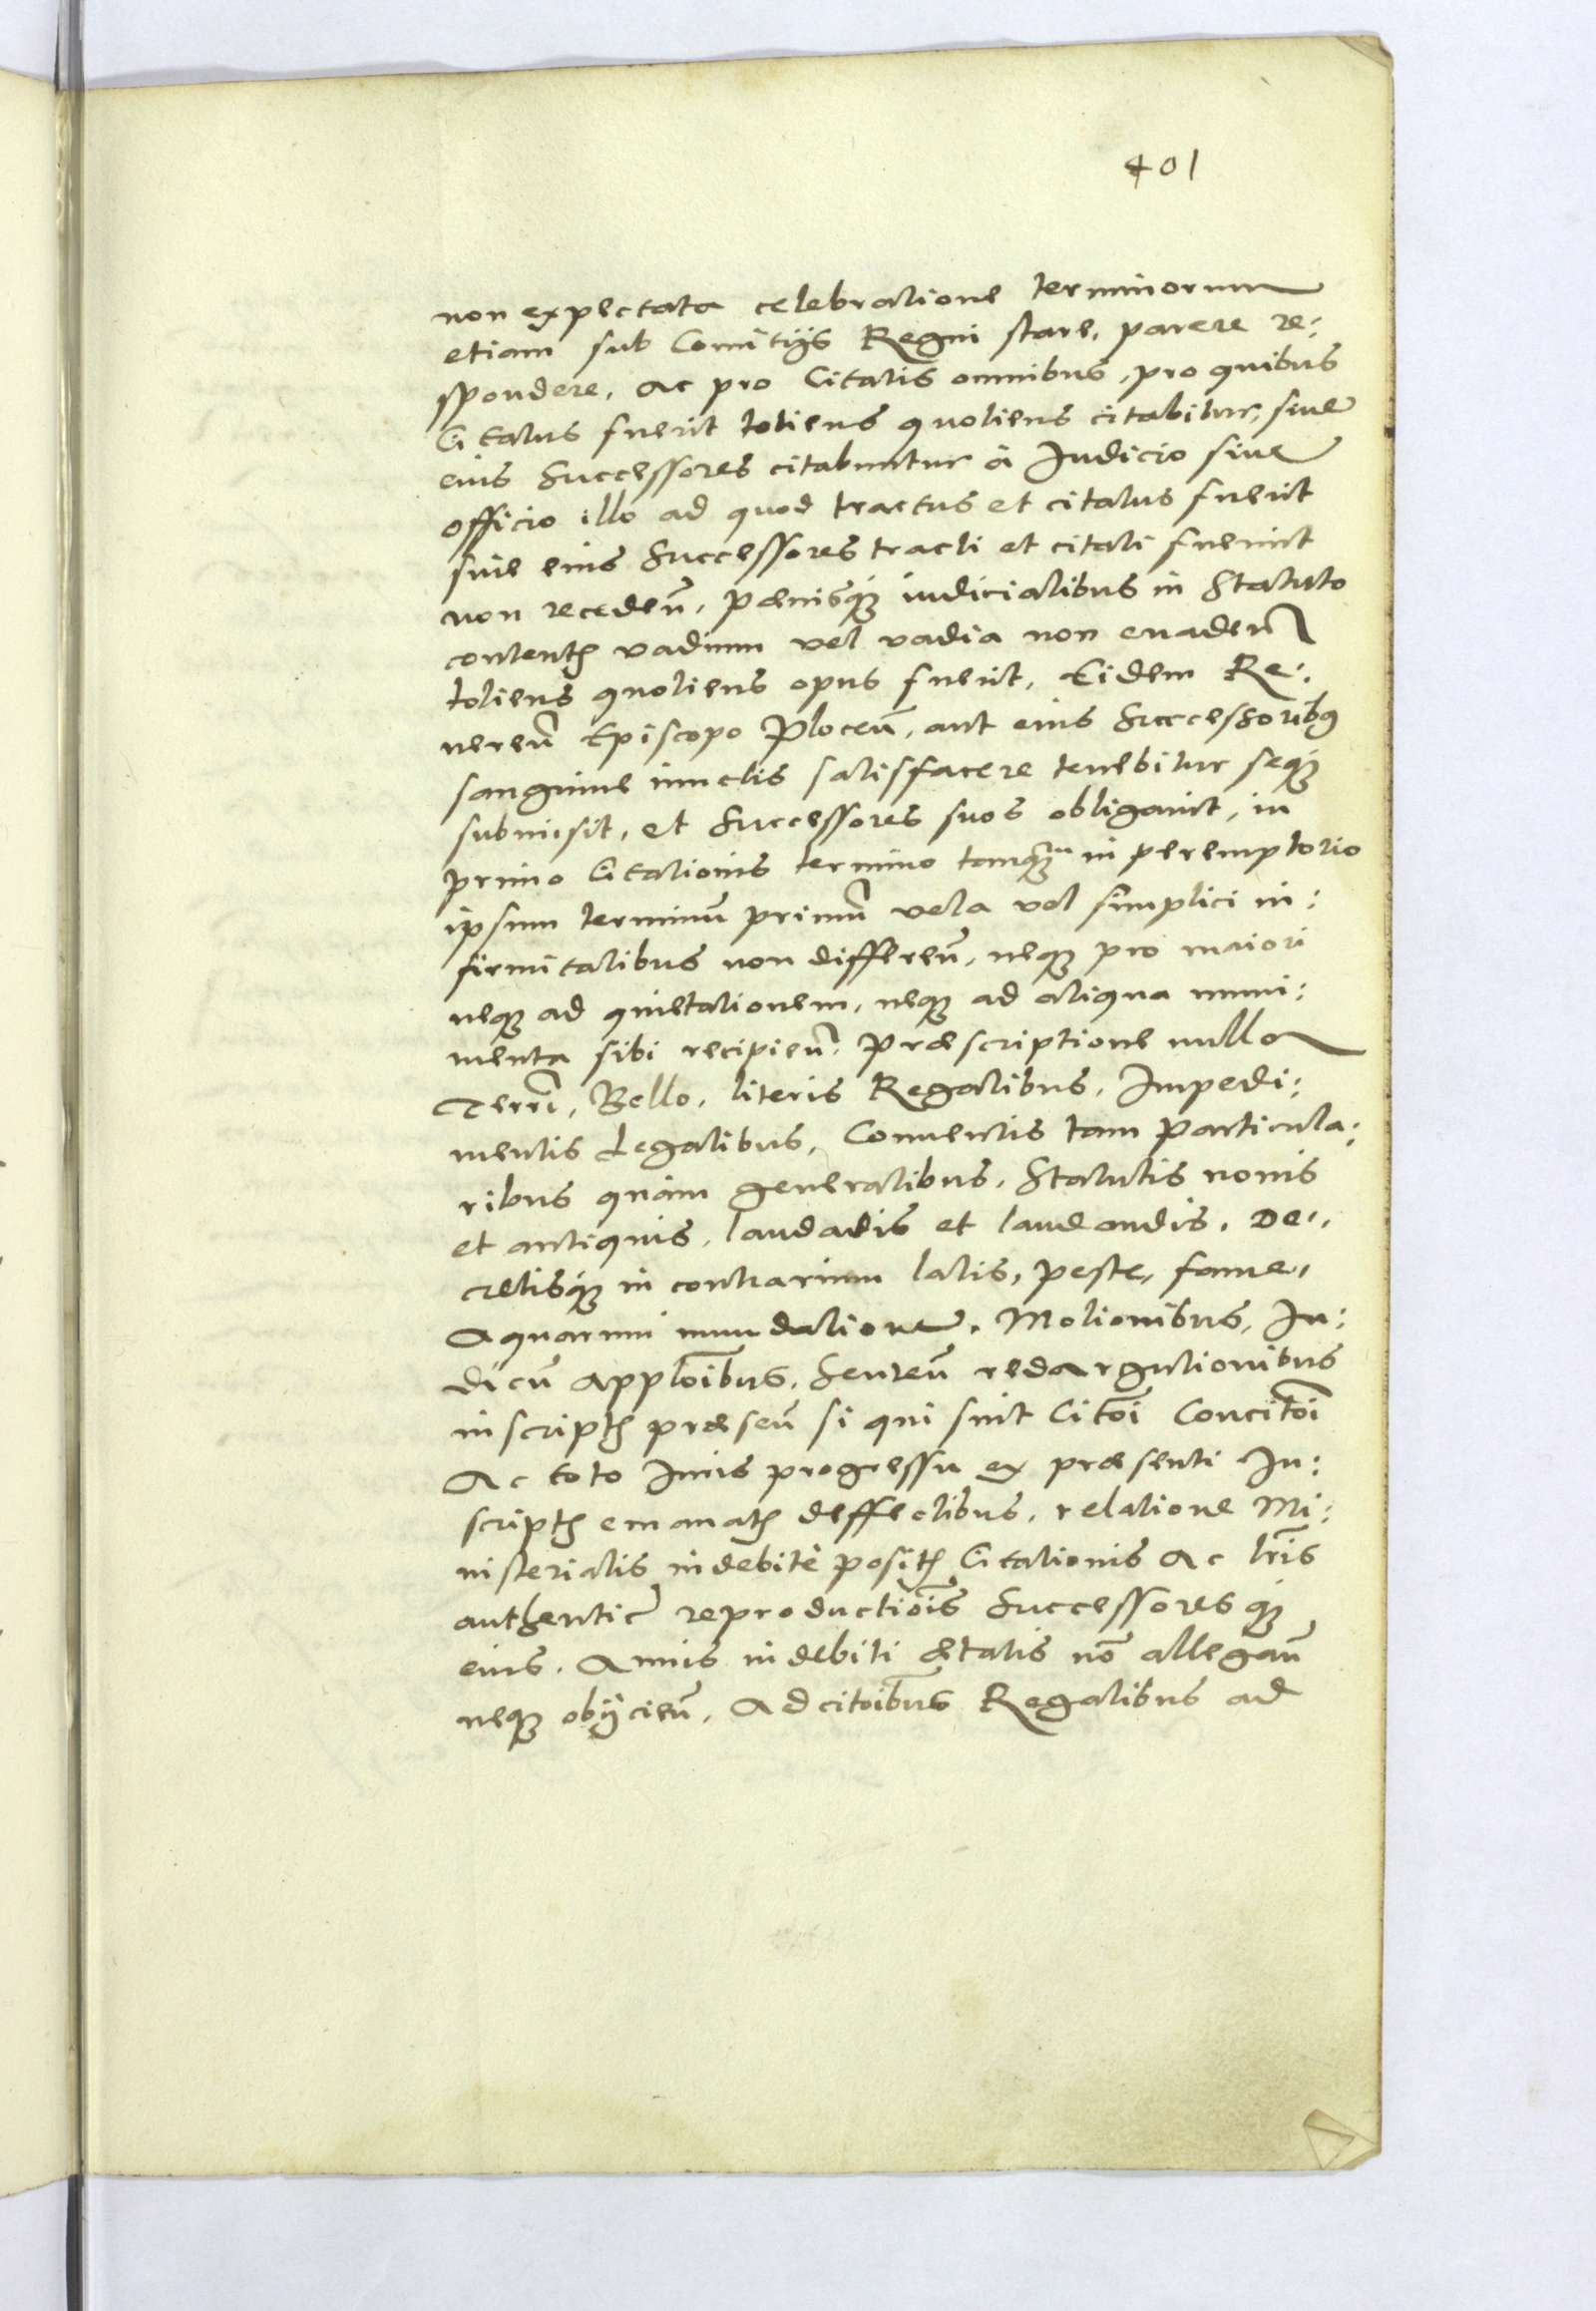 401
non expectata celebratione terminorum
etiam sub Comitijs Regni stare, parere re:
spondere, ac pro Citatis omnibus, pro quibus
Citatus fuerit totiens quotiens citabitur, siue
eius Successores citabuntur à Iudicio siue
officio illo ad quod tractus et citatus fuerit
siue eius Successores tracti et citati fuerint
non recedeñ, Pænisq́ue iudicialibus in Statuto
contentꝭ vadium vel vadia non euadeñ
totiens quotiens opus fuerit, Eidem Re:
uereñ Episcopo Ploceñ, aut eius Successoribꝰ
sanguine iunctis satisfacere tenebitur seq́ue
submisit, et Successores suos obligauit, in
primo Citationis termino tanquam in peremptorio
ipsum terminũ primũ vera vel simplici in:
firmitatibus non differeñ, neque pro maiori
neque ad quietationem, neque ad aliqua muni:
menta sibi recipieñ, Præscriptione nulla
Terrĩ, Bello, literis Regalibus, Impedi:
mentis Legalibus, Conuentis tam Particula:
ribus quàm generalibus, Statutis nouis
et antiquis, laudatis et laudandis, De:
cretisq́ue in contrarium latis, peste, fame,
Aquarum inundatione, Motionibus, Iu:
dicũ appl̃oibus, Senteñ redargutionibus
inscriptꝭ præseñ si qui sint Citõi Concitõi
Ac toto Iuris progressu ex præsenti In:
scriptꝭ emanatꝭ deffectibus, relatione Mi:
nisterialis indebitè positꝭ Citationis Ac lr̃is
authentic̃ reproductiõis Successoresq́ue
eius, Annis indebiti ætatis nõ allegañ
neque obijcieñ, Ad citõibus Regalibus ad